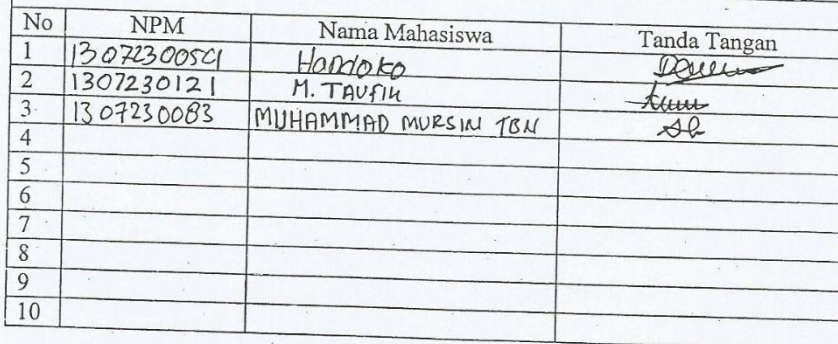 No NPM Nama Mahasiswa Tanda Tangan
1 1307230059 Handoko
2 1307230121 M. TAUFIK
3 1307230083 MUHAMMAD MURSIN TBN
4
5
6
7
8
9
10